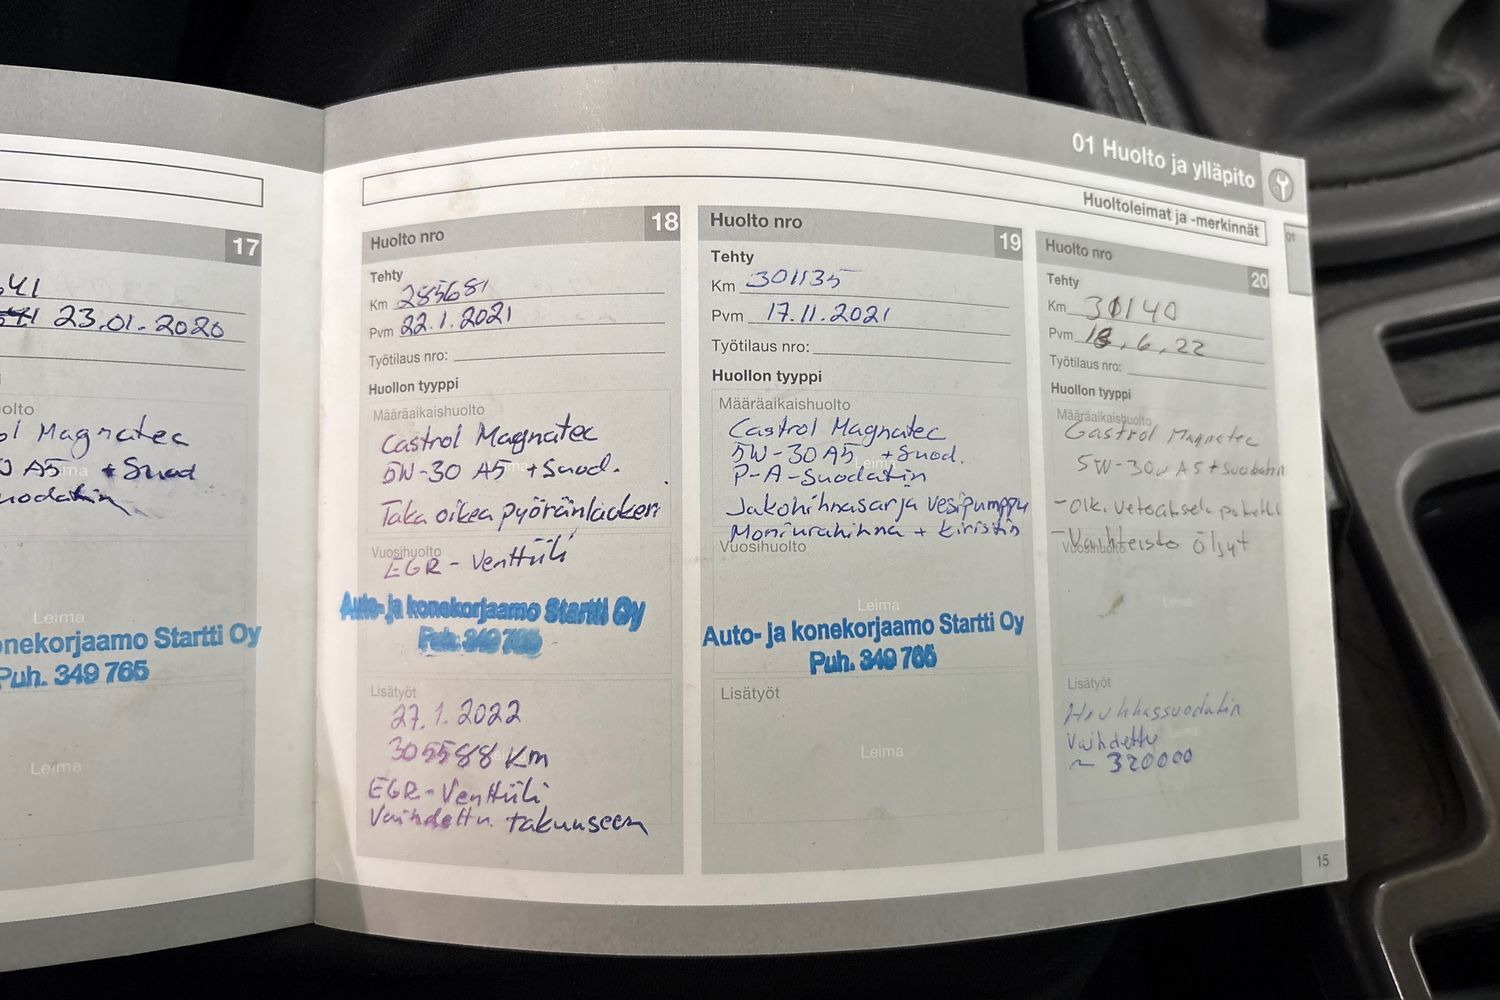 01 Huolto ja ylläpito
Huoltoleimat ja -merkinnät
01
17
541
23.01.2020
Magnatec
A5 + Suod
Leima
onekorjaamo Startti Oy
Puh. 349 765
Leima
Huolto nro 18
Tehty
Km 285681
Pvm 22.1.2021
Työtilaus nro:
Huollon tyyppi
Määräaikaishuolto
Castrol Magnatec
5W-30 A5 + Suod.
Taka oikea pyöränlaakeri
Vuosihuolto
EGR-Venttiili
Auto- ja konekorjaamo Startti Oy
Puh. 349 765
Lisätyöt
27.1.2022
305588 Km
EGR-Venttiili
Vaihdettu takuuseen
Huolto nro 19
Tehty
Km 301135
Pvm 17.11.2021
Työtilaus nro:
Huollon tyyppi
Määräaikaishuolto
Castrol Magnatec
5W-30 A5 + Suod.
P-A-Suodatin
Jakohihnasarja vesipumppu
Moniurahihna + kiristin
Vuosihuolto
Leima
Auto- ja konekorjaamo Startti Oy
Puh. 349 765
Lisätyöt
Leima
Huolto nro 20
Tehty
Km 30140
Pvm 18.6.22
Työtilaus nro:
Huollon tyyppi
Määräaikaishuolto
Castrol Magnatec
5W-30 A5 + suodatin
- Oik. vetoakseli
- Vaihteisto öljyt
Vuosihuolto
Leima
Lisätyöt
Hiukkassuodatin
Vaihdettu
~ 320000
15